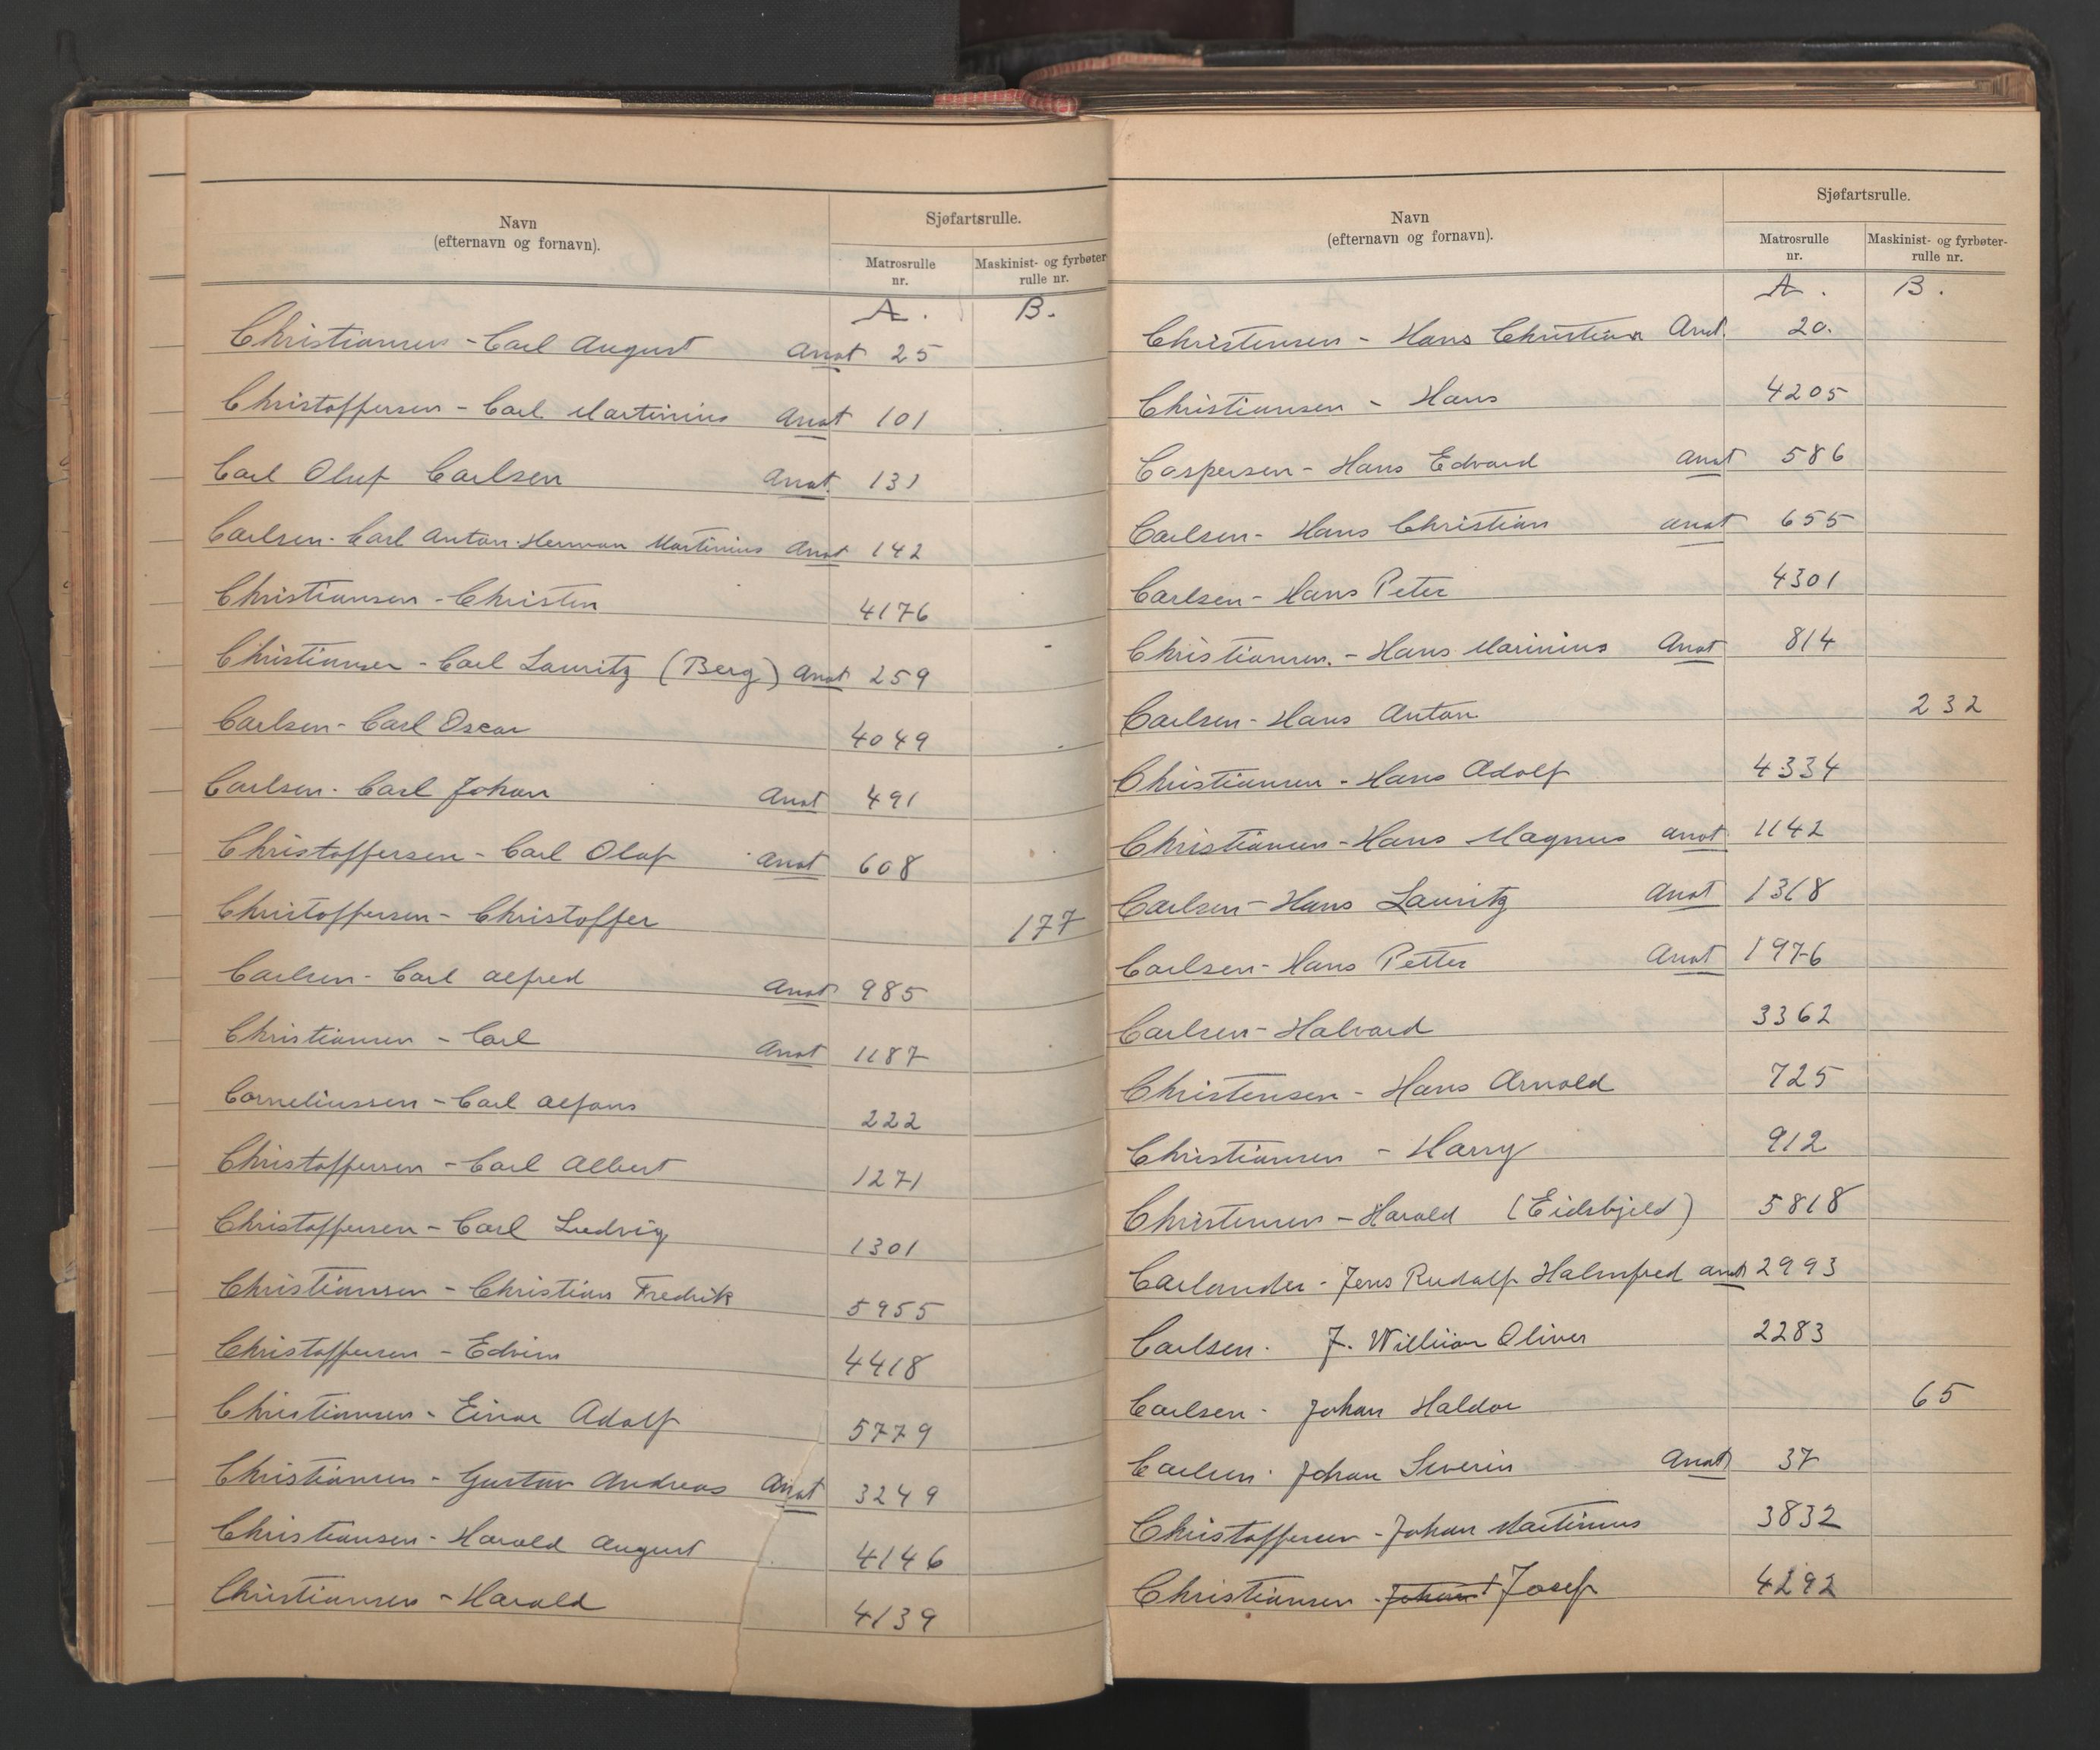 Navn
(efternavn og fornavn).
Sjøfartsrulle.
Matrosrulle
nr.
Maskinist- og fyrbøter
rulle nr.
A. B.
Christiansen - Carl August Anot 25
Christoffersen - Carl Martinius Anot 101
Carl Oluf Carlsen Anot. 131
Carlsen - Carl Anton Herman Martinius Anot 142
Christiansen - Christen 4176
Christiansen - Carl Lauritz (Berg) Anot 259
Carlsen - Carl Oscar 4049
Carlsen - Carl Johan Anot 491
Christoffersen - Carl Olaf Anot 608
Christoffersen - Christoffer 177
Carlsen - Carl Alfred Anot 985
Christiansen - Carl Anot 1187
Corneliussen - Carl Alfons 222
Christoffersen - Carl Albert 1271
Christoffersen - Carl Ludvig 1301
Christiansen - Christian Fredrik 5955
Christoffersen - Edvin 4418
Christiansen - Einar Adolf 5779
Christiansen - Gustav Andreas Anot 3249
Christiansen - Harald August 4146
Christiansen - Harald 4139
Navn
(efternavn og fornavn).
Sjøfartsrulle.
Matrosrulle
nr.
Maskinist- og fyrbøter-
rulle nr.
A. B.
Christensen - Hans Christian Anot. 20.
Christiansen - Hans 4205
Caspersen - Hans Edvard Anot 586
Carlsen - Hans Christian Anot 655
Carlsen - Hans Peter 4301
Christiansen. - Hans Marinius Anot 814
Carlsen - Hans Anton 232
Christiansen - Hans Adolf 4334
Christiansen - Hans Magnus Anot 1142
Carlsen - Hans Lauritz Anot 1318
Carlsen - Hans Petter Anot 1976
Carlsen - Halvard 3362
Christensen - Hans Arnold 725
Christiansen - Harry 912
Christensen - Harald (Eidsbjeld) 5818
Carlander - Jens Rudolf Halmfred Anot 2993
Carlsen - J. William Oliver 2283
Carlsen - Johan Haldor 65
Carlsen - Johan Severin Anot 37
Christoffersen - Johan Martinius 3832
Christiansen - Johant Josef 4292